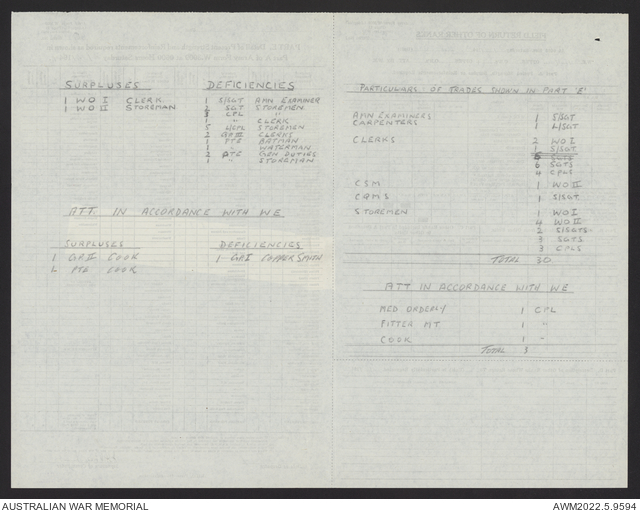 SURPLUSES
1 WO I CLERK
1 WO II STOREMAN
DEFICIENCIES
1 S/SGT AMN EXAMINER
2 SGT STOREMEN
3 CPL "
1 " CLERK
5 L/CPL STOREMEN
2 GR III CLERKS
1 PTE BATMAN
1 " WATERMAN
2 PTE GEN DUTIES
1 " STOREMAN
ATT. IN ACCORDANCE WITH WE
SURPLUSES
1 GR II COOK
1 PTE COOK
DEFICIENCIES
1 GR I COPPERSMITH
PARTICULARS OF TRADES SHOWN IN PART 'E'
AMN EXAMINERS 1 S/SGT
CARPENTERS 1 L/SGT
CLERKS 2 WO I
1 S/SGT
6 SGTS
4 CPLS
CSM 1 WO II
CQMS 1 S/SGT
STOREMEN 1 WO I
4 WO II
2 S/SGTS
3 SGTS
3 CPLS
TOTAL 30
ATT IN ACCORDANCE WITH WE
MED ORDERLY 1 CPL
FITTER MT 1 "
COOK 1 "
TOTAL 3
AUSTRALIAN WAR MEMORIAL
AWM2022.5.9594